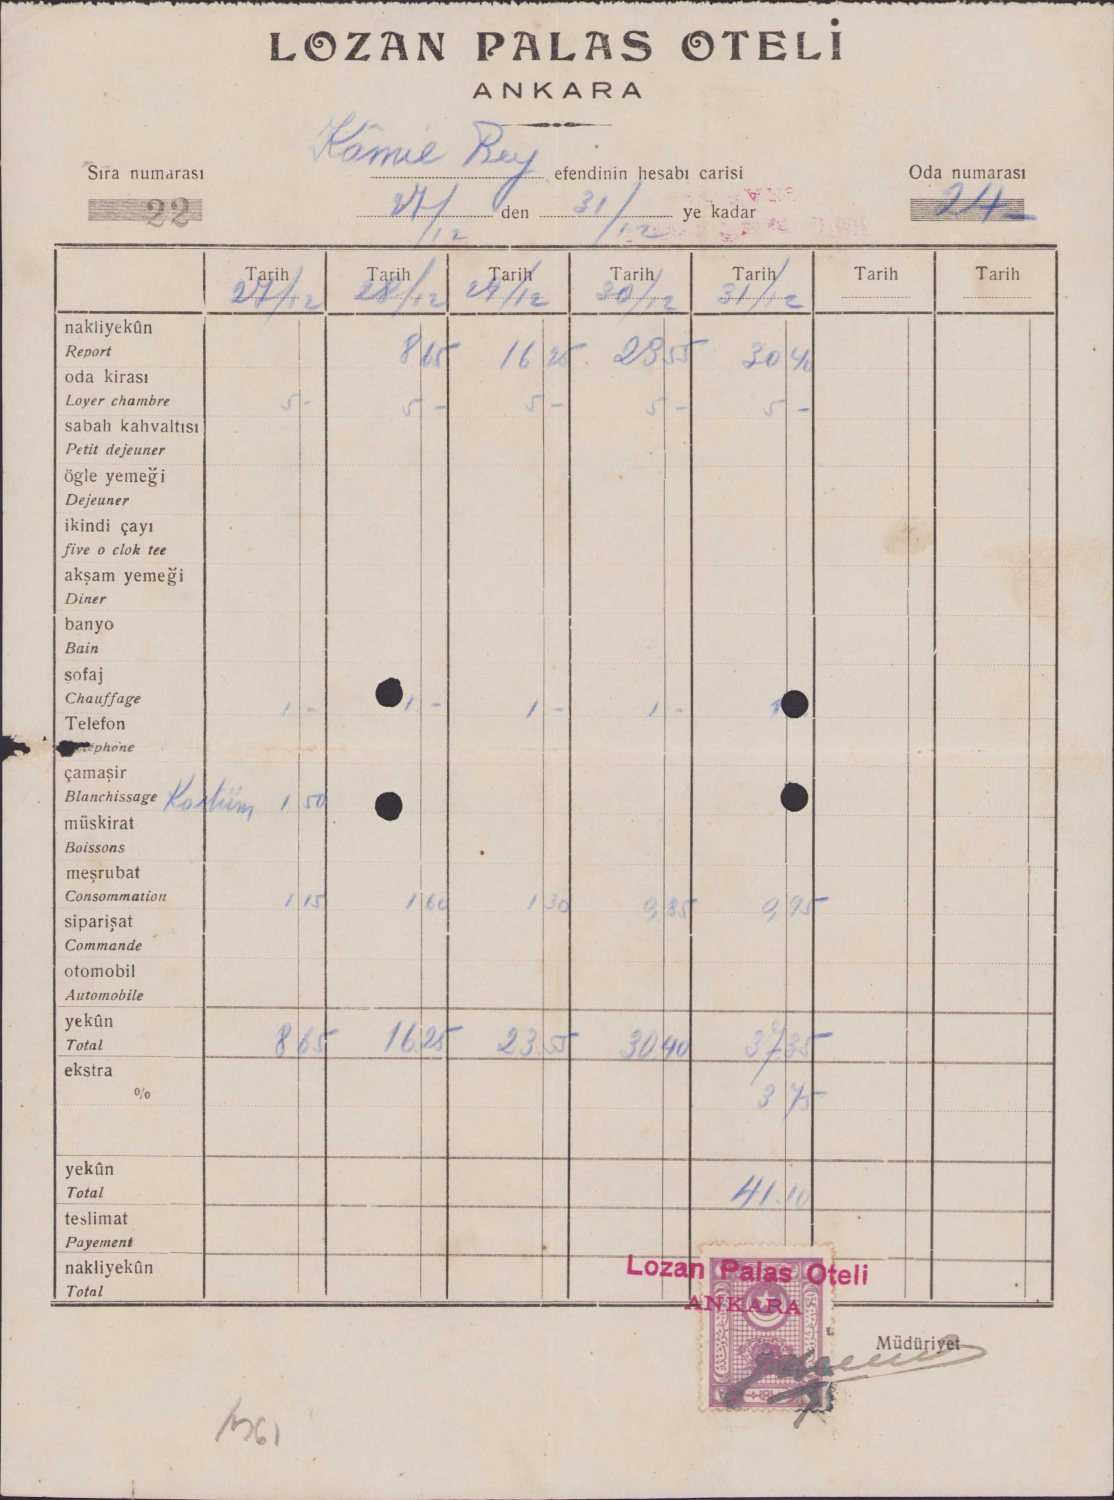 LOZAN PALAS OTELİ
ANKARA
Kâmil Bey efendinin hesabı carisi
Sıra numarası
22
Oda numarası
24
27/12 den 31/12 ye kadar
Tarih Tarih Tarih Tarih Tarih Tarih Tarih
27/12 28/12 29/12 30/12 31/12
nakliyekûn
Report 8 65 16 25 23 55 30 40
oda kirası
Loyer chambre 5 - 5 - 5 - 5 - 5 -
sabah kahvaltısı
Petit dejeuner
ögle yemeği
Dejeuner
ikindi çayı
five o clok tee
akşam yemeği
Diner
banyo
Bain
şofaj
Chauffage 1 - 1 - 1 - 1 -
Telefon
çamaşir
Blanchissage Kostüm 1 50
müskirat
Boissons
meşrubat
Consommation 1 15 1 60 1 30 0,85 0,95
siparişat
Commande
otomobil
Automobile
yekûn
Total 8 65 16 25 23 55 30 40 37 35
ekstra
% 3 75
yekûn
Total 41.10
teslimat
Payement
nakliyekûn
Total
Lozan Palas Oteli
ANKARA
Müdüriyet